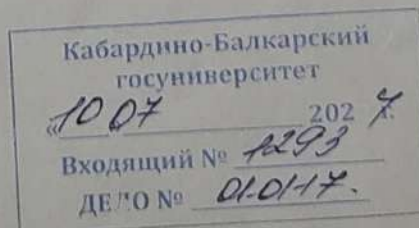 Кабардино-Балкарский
госуниверситет
«10 07 202 г.
Входящий № 1293
ДЕЛО № 01-01-17.